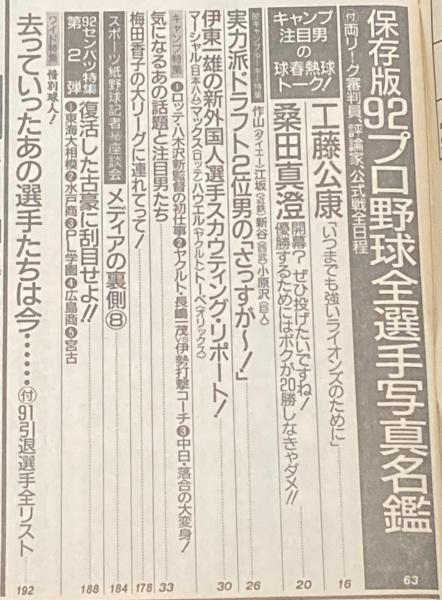 保存版92プロ野球全選手写真名鑑
付両リーグ審判員、評論家、公式戦全日程
63
キャンプ注目の男
球春熱球トーク!
工藤公康「いつまでも強いライオンズのために」
16
桑田真澄
開幕?ぜひ投げたいですね!
優勝するためにはボクが20勝しなきゃダメ!!
20
92キャンプ・ルーキー特集
実力派ドラフト2位男の「さっすが〜!」
作山(ダイエー)江坂(近鉄)新谷(西武)小原沢(巨人)
26
伊東一雄の新外国人選手スカウティング・リポート!
マーシャル(日本ハム)マックス(ロッテ)ハウエル(ヤクルト)トーベ(オリックス)
30
キャンプ特集
気になるあの話題と注目男たち
❶ロッテ・八木沢新監督の初仕事❷ヤクルト・長嶋一茂VS伊勢打撃コーチ❸中日・落合の大変身!
33
梅田香子の大リーグに連れてって!
178
スポーツ紙野球記者㊙座談会
メディアの裏側⑧
184
92センバツ特集第2弾
復活した古豪に刮目せよ!!
❶東海大相模❷水戸商❸PL学園❹広島商❺宮古
188
ワイド特集
惜別球人!
去っていったあの選手たちは今……付91引退選手全リスト
192